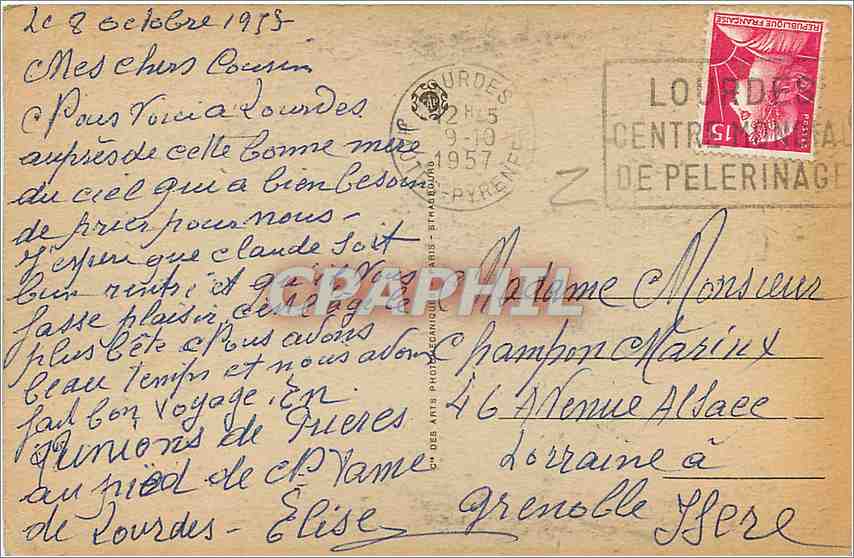 Le 8 octobre 1957
Mes chers Cousin
Nous voici a Lourdes
auprès de cette bonne mère
du ciel qui a bien besoin
de prier pour nous -
J'esperè que claude soit
bien rentré et qu'il vous
fasse plaisir, c'est l'age le
plus bête Nous avons
beau temps et nous avons
fait bon voyage. En
Junions de Prieres
au pied de N Dame
de Lourdes - Élise
LOURDES
12H15
9-10
1957
PYRENEES
REPUBLIQUE FRANÇAISE
15F
POSTES
LOURDES
CENTRE MONDIAL
DE PELERINAGE
Cie DES ARTS PHOTOMECANIQUES PARIS - STRASBOURG
CPAPHIL
Madame Monsieur
Champon Marius
46 Avenue Alsace
Lorraine à
Grenoble Isere